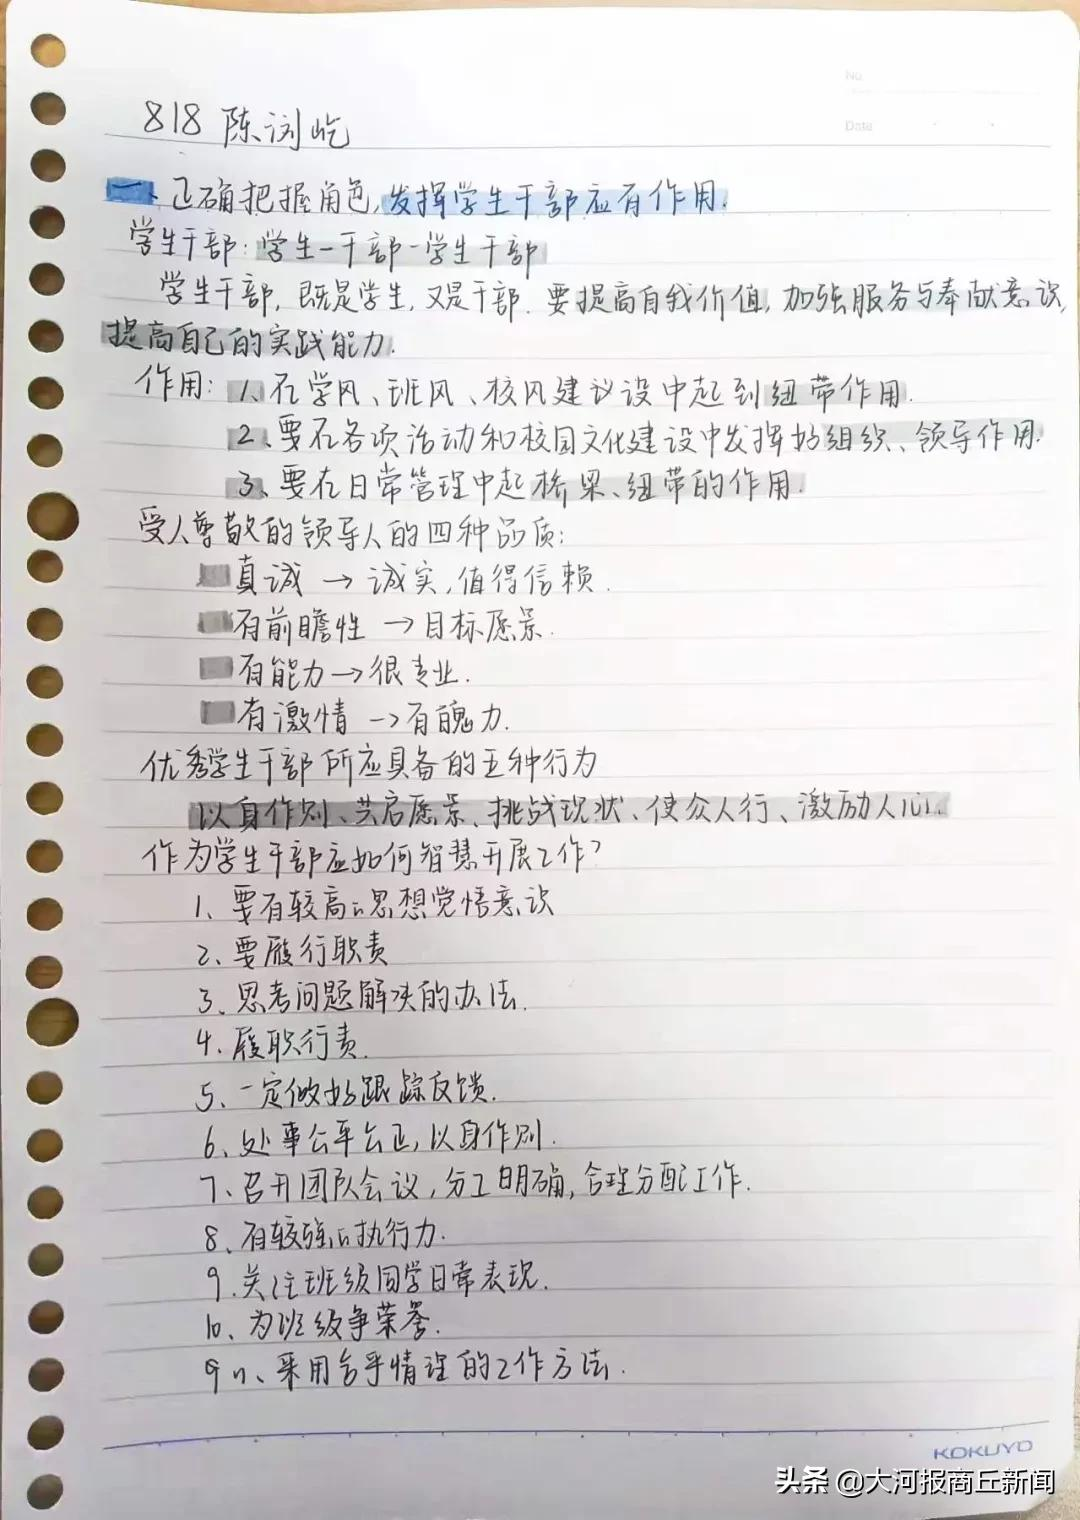 No
Date
818 陈浏屹
一、正确把握角色,发挥学生干部应有作用.
学生干部:学生—干部—学生干部
学生干部,既是学生,又是干部.要提高自我价值,加强服务与奉献意识,
提高自己的实践能力.
作用:1、在学风、班风、校风建议设中起到纽带作用.
2、要在各项活动和校园文化建设中发挥好组织、领导作用.
3、要在日常管理中起桥梁、纽带的作用.
受人尊敬的领导人的四种品质:
真诚→诚实,值得信赖.
有前瞻性→目标愿景.
有能力→很专业.
有激情→有魄力.
优秀学生干部所应具备的五种行为
以身作则、共启愿景、挑战现状、使众人行、激励人心.
作为学生干部应如何智慧开展工作?
1、要有较高的思想觉悟意识
2、要履行职责
3、思考问题解决的办法.
4、履职行责.
5、一定做好跟踪反馈.
6、处事公平公正,以身作则.
7、召开团队会议,分工明确,合理分配工作.
8、有较强的执行力.
9.关注班级同学日常表现.
10、为班级争荣誉.
9 11、采用合乎情理的工作方法.
KOKUYO
头条 @大河报商丘新闻